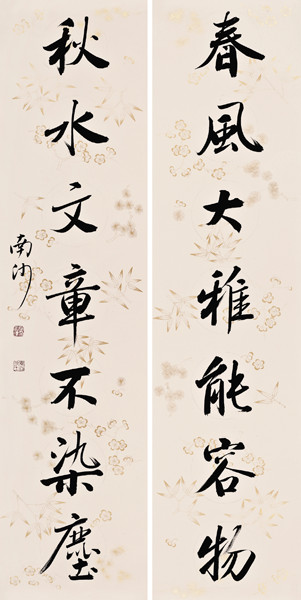 春風大雅能容物
秋水文章不染塵
南沙